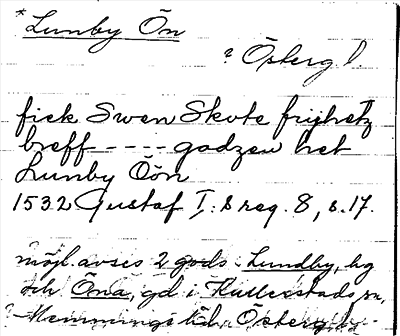 * Lunby Ön
? Österg l
fick Swen Skote frijhetz
breff - - - - godzen het
Lunby Öön
1532 Gustaf I:s reg. 8, s. 17.
möjl. avses 2 gods: Lundby, hg
och Öna, gd i Kullerstads sn,
Memmings hd, Österg.